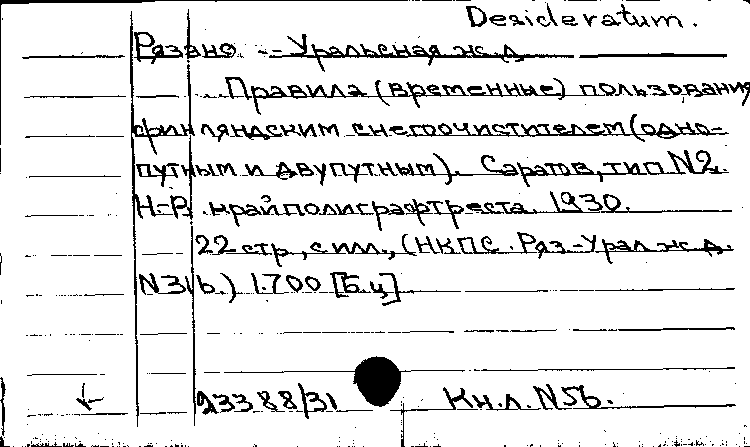 Desideratum.
Рязано - Уральская ж.д.
Правила (временные) пользования
финляндским снегоочистителем (одно-
путным и двупутным). Саратов, тип N2.
Н-В. крайполиграфтреста. 1930.
22 стр, с илл., (НКПС. Ряз-Урал ж.д.
N31b.) 1.700 [Б.ц]
23388/31 Кн.л. N56.